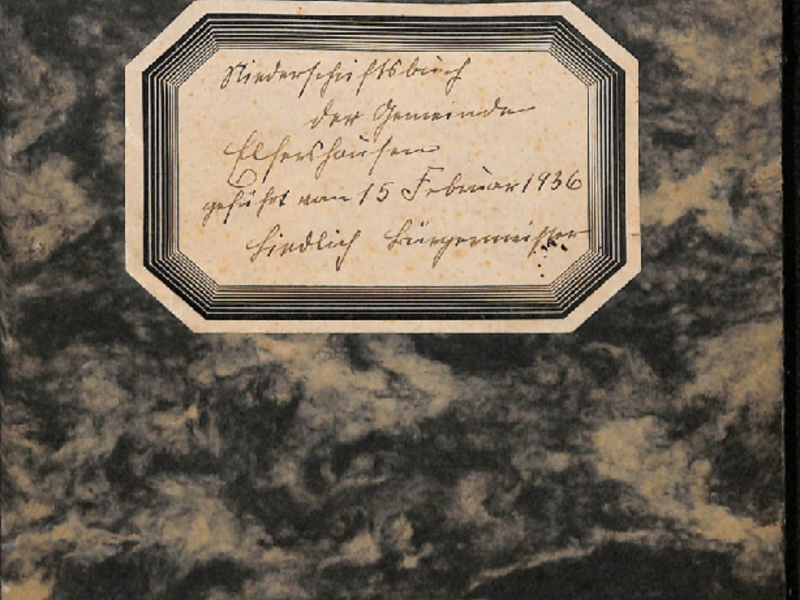 Niederschriftsbuch
der Gemeinde
Elfershausen
geführt vom 15 Februar 1936
Bürgermeister